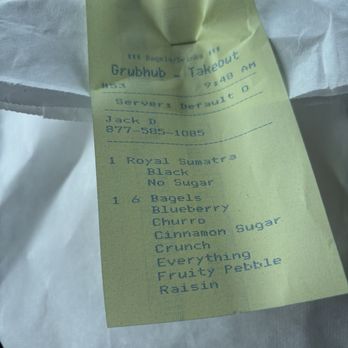 !!! Bagels/Drinks !!!
Grubhub - TakeOut
#53 9:48 AM
Server: Default O
Jack D
877-585-1085
1 Royal Sumatra
Black
No Sugar
1 6 Bagels
Blueberry
Churro
Cinnamon Sugar
Crunch
Everything
Fruity Pebble
Raisin